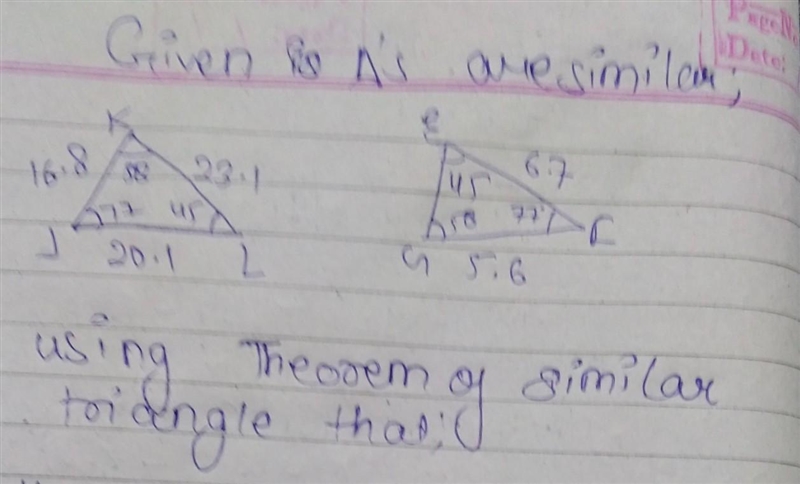 Page N
Date:
Given is Δ's are similar;
K
16.8 58 23.1
77 45
J 20.1 L
E
45 6.7
58 77
G 5.6
using Theorem of similar
triangle that;